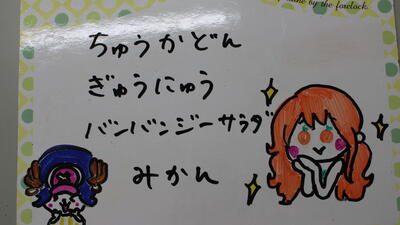 by the forelock.
ちゅうかどん
ぎゅうにゅう
バンバンジーサラダ
みかん